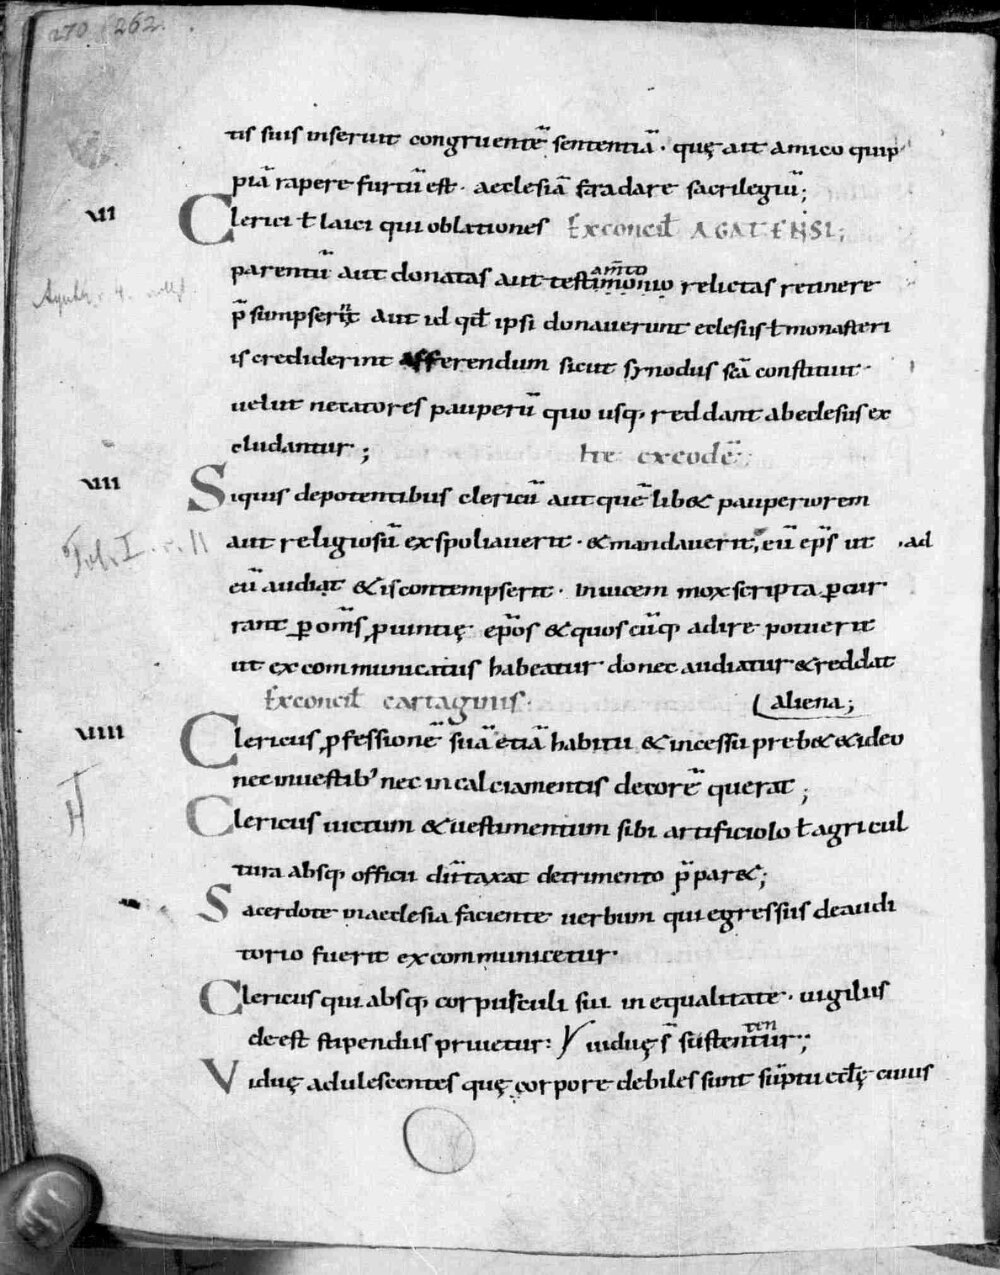 270 262.
tis suis inseruit congruentē sententiā · quę ait amico quip
piā rapere furtū est · aecclesiā fradare sacrilegiū;
VII Clerici ł laici qui oblationes Ex concił AGATENSI;
parentū aut donatas aut testimonio amto relictas retinere
p̄sumpserit aut id qđ ipsi donauerunt eclesiis ł monasteri
is crediderint afferendum sicut synodus sc̄a constituit ·
uelut necatores pauperū quo usq; reddant ab eclesiis ex
cludantur;
Ite ex eodē:
VIII Siquis de potentibus clericū aut quē lib& pauperiorem
aut religiosū expoliauerit · & mandauerit, eū ep̄s ut · ad
eū audiat & is contempserit · inuicem mox scripta ꝑcur
rant ꝑ om̄s ꝓuintię ep̄os & quoscūq; adire potuerit
ut excommunicatus habeatur donec audiatur & reddat
aliena;
Ex concił cartaginis ·
VIIII Clericus ꝓfessionē suā etiā habitu & incessu preb& & ideo
nec in uestib' nec in calciamentis decorē querat;
Clericus uictum & uestimentum sibi artificiolo ł agricul
tura absq; officii dūtaxat detrimento p̄par&;
Sacerdote in aeclesia faciente uerbum qui egressus de audi
torio fuerit excommunicetur ·
Clericus qui absq; corpusculi sui inequalitate · uigiliis
deest stipendiis priuetur: uiduę s̄ sustentur ten;
Viduę adulescentes quę corpore debiles sunt sūptu ecłę cuius